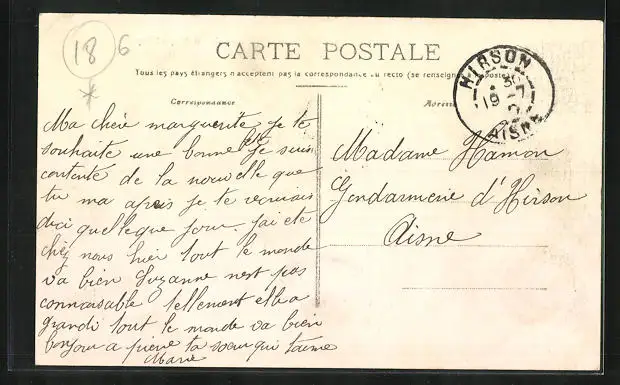 18 6
CARTE POSTALE
Tous les pays étrangers n'acceptent pas la correspondance au recto (se renseigner poste)
Correspondance
Adresse
HIRSON
AISNE
Ma chère marguerite, je te
souhaite une bonne fête je suis
contente de la nouvelle que
tu ma apris je te recrirais
dici quelleque jour. jai ete
chez nous hier tout le monde
va bien Suzanne nest pas
connaisable tellement elle a
grandi tout le monde va bien
bonjour a pierre ta sœur qui taime
Marie
Madame Hamon
Gendarmerie d'Hirson
Aisne